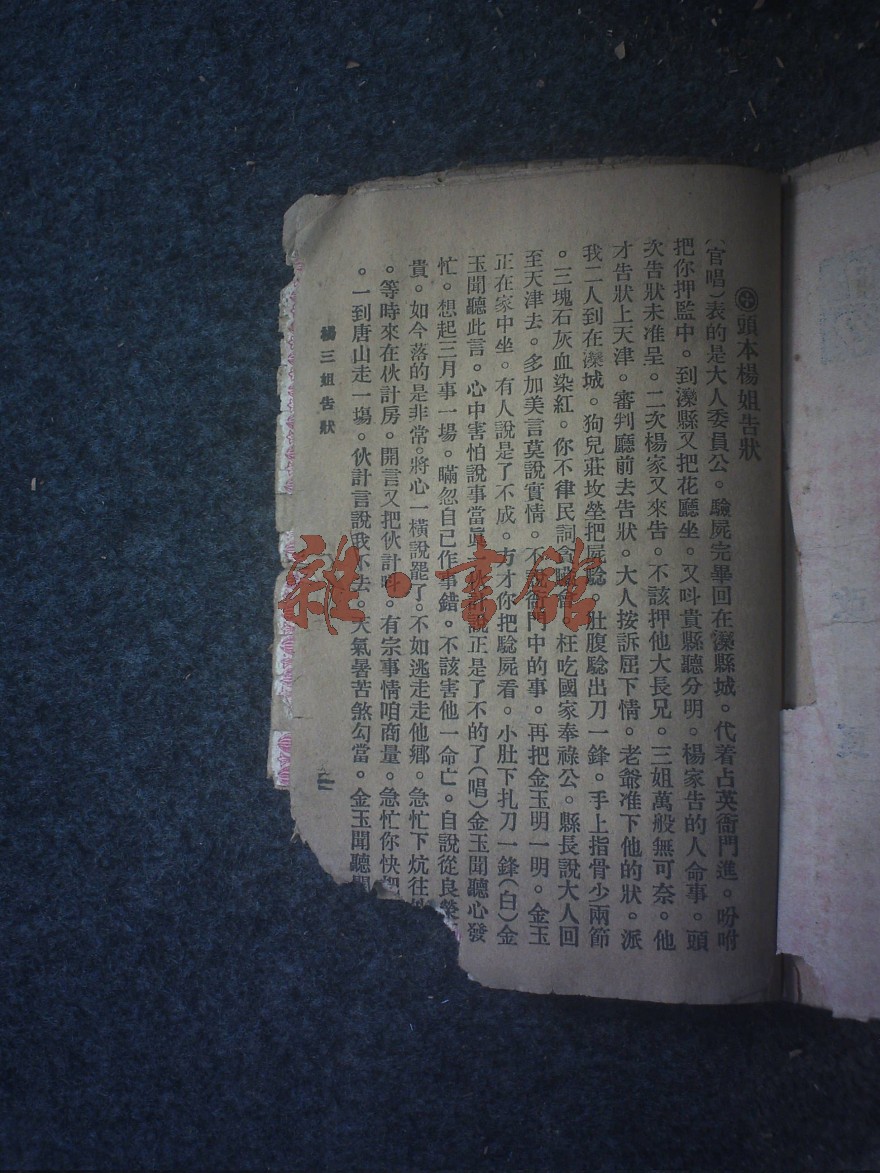 頭本楊姐告狀
(官唱)表的是大人委員公。驗屍完畢回在灤縣城。代着占英衙門進。吩咐
把你押監中。到灤縣又把花廳坐。又呌貴縣聽分明。楊家告的人命事。頭
次告狀未准呈。二次楊家又來告。不該押他大長兄。三姐萬般無可奈。他
才告狀上天津。審判廳前去告狀。大人按訴屈下情。老爺准下他的狀。派
我二人到在灤城。狗兒莊坟塋把屍騐。肚腹騐出刀一鋒。手上指骨少兩節
。三塊石灰血染紅。你不律民詞貪贓會。枉吃國家奉祿公。縣長說大人回
至天津去。多加美言莫說實情。不說衙門中的事。再把金玉明一明。金玉
正在家中坐。有人說是了不成。方才你把騐屍看。小肚下扎刀一鋒(白)金
玉聞聽此言。心中害怕說事當眞。伙計說正是了不的了(唱)金玉聞聽心發
忙。想起三月事一場。瞞忽自已作事錯。不該害他一命亡。自說從良榮
貴。如今落的是非常。將心一橫說罷了。不如逃走走他鄉。急忙下炕往
。等時來在伙計房。開言又把伙計呌。有宗事情咱商量。急忙你快
。一到唐山走一塲。伙計言說我不去。天氣暑苦煞勾當。金玉聞聽
楊三姐告狀
二
雜·書館